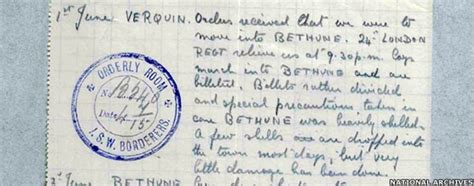 1st June VERQUIN. Orders received that we were to
move into BETHUNE. 24th LONDON
REGT relieve us at 9.30 p.m. Coys
march into BETHUNE and are
billetted. Billets rather divided
and special precautions taken in
case BETHUNE was heavily shelled.
A few shells are dropped into
the town most days, but very
little damage has been done.
2nd June BETHUNE
ORDERLY ROOM
No
Date
1. S.W. BORDERERS.
NATIONAL ARCHIVES